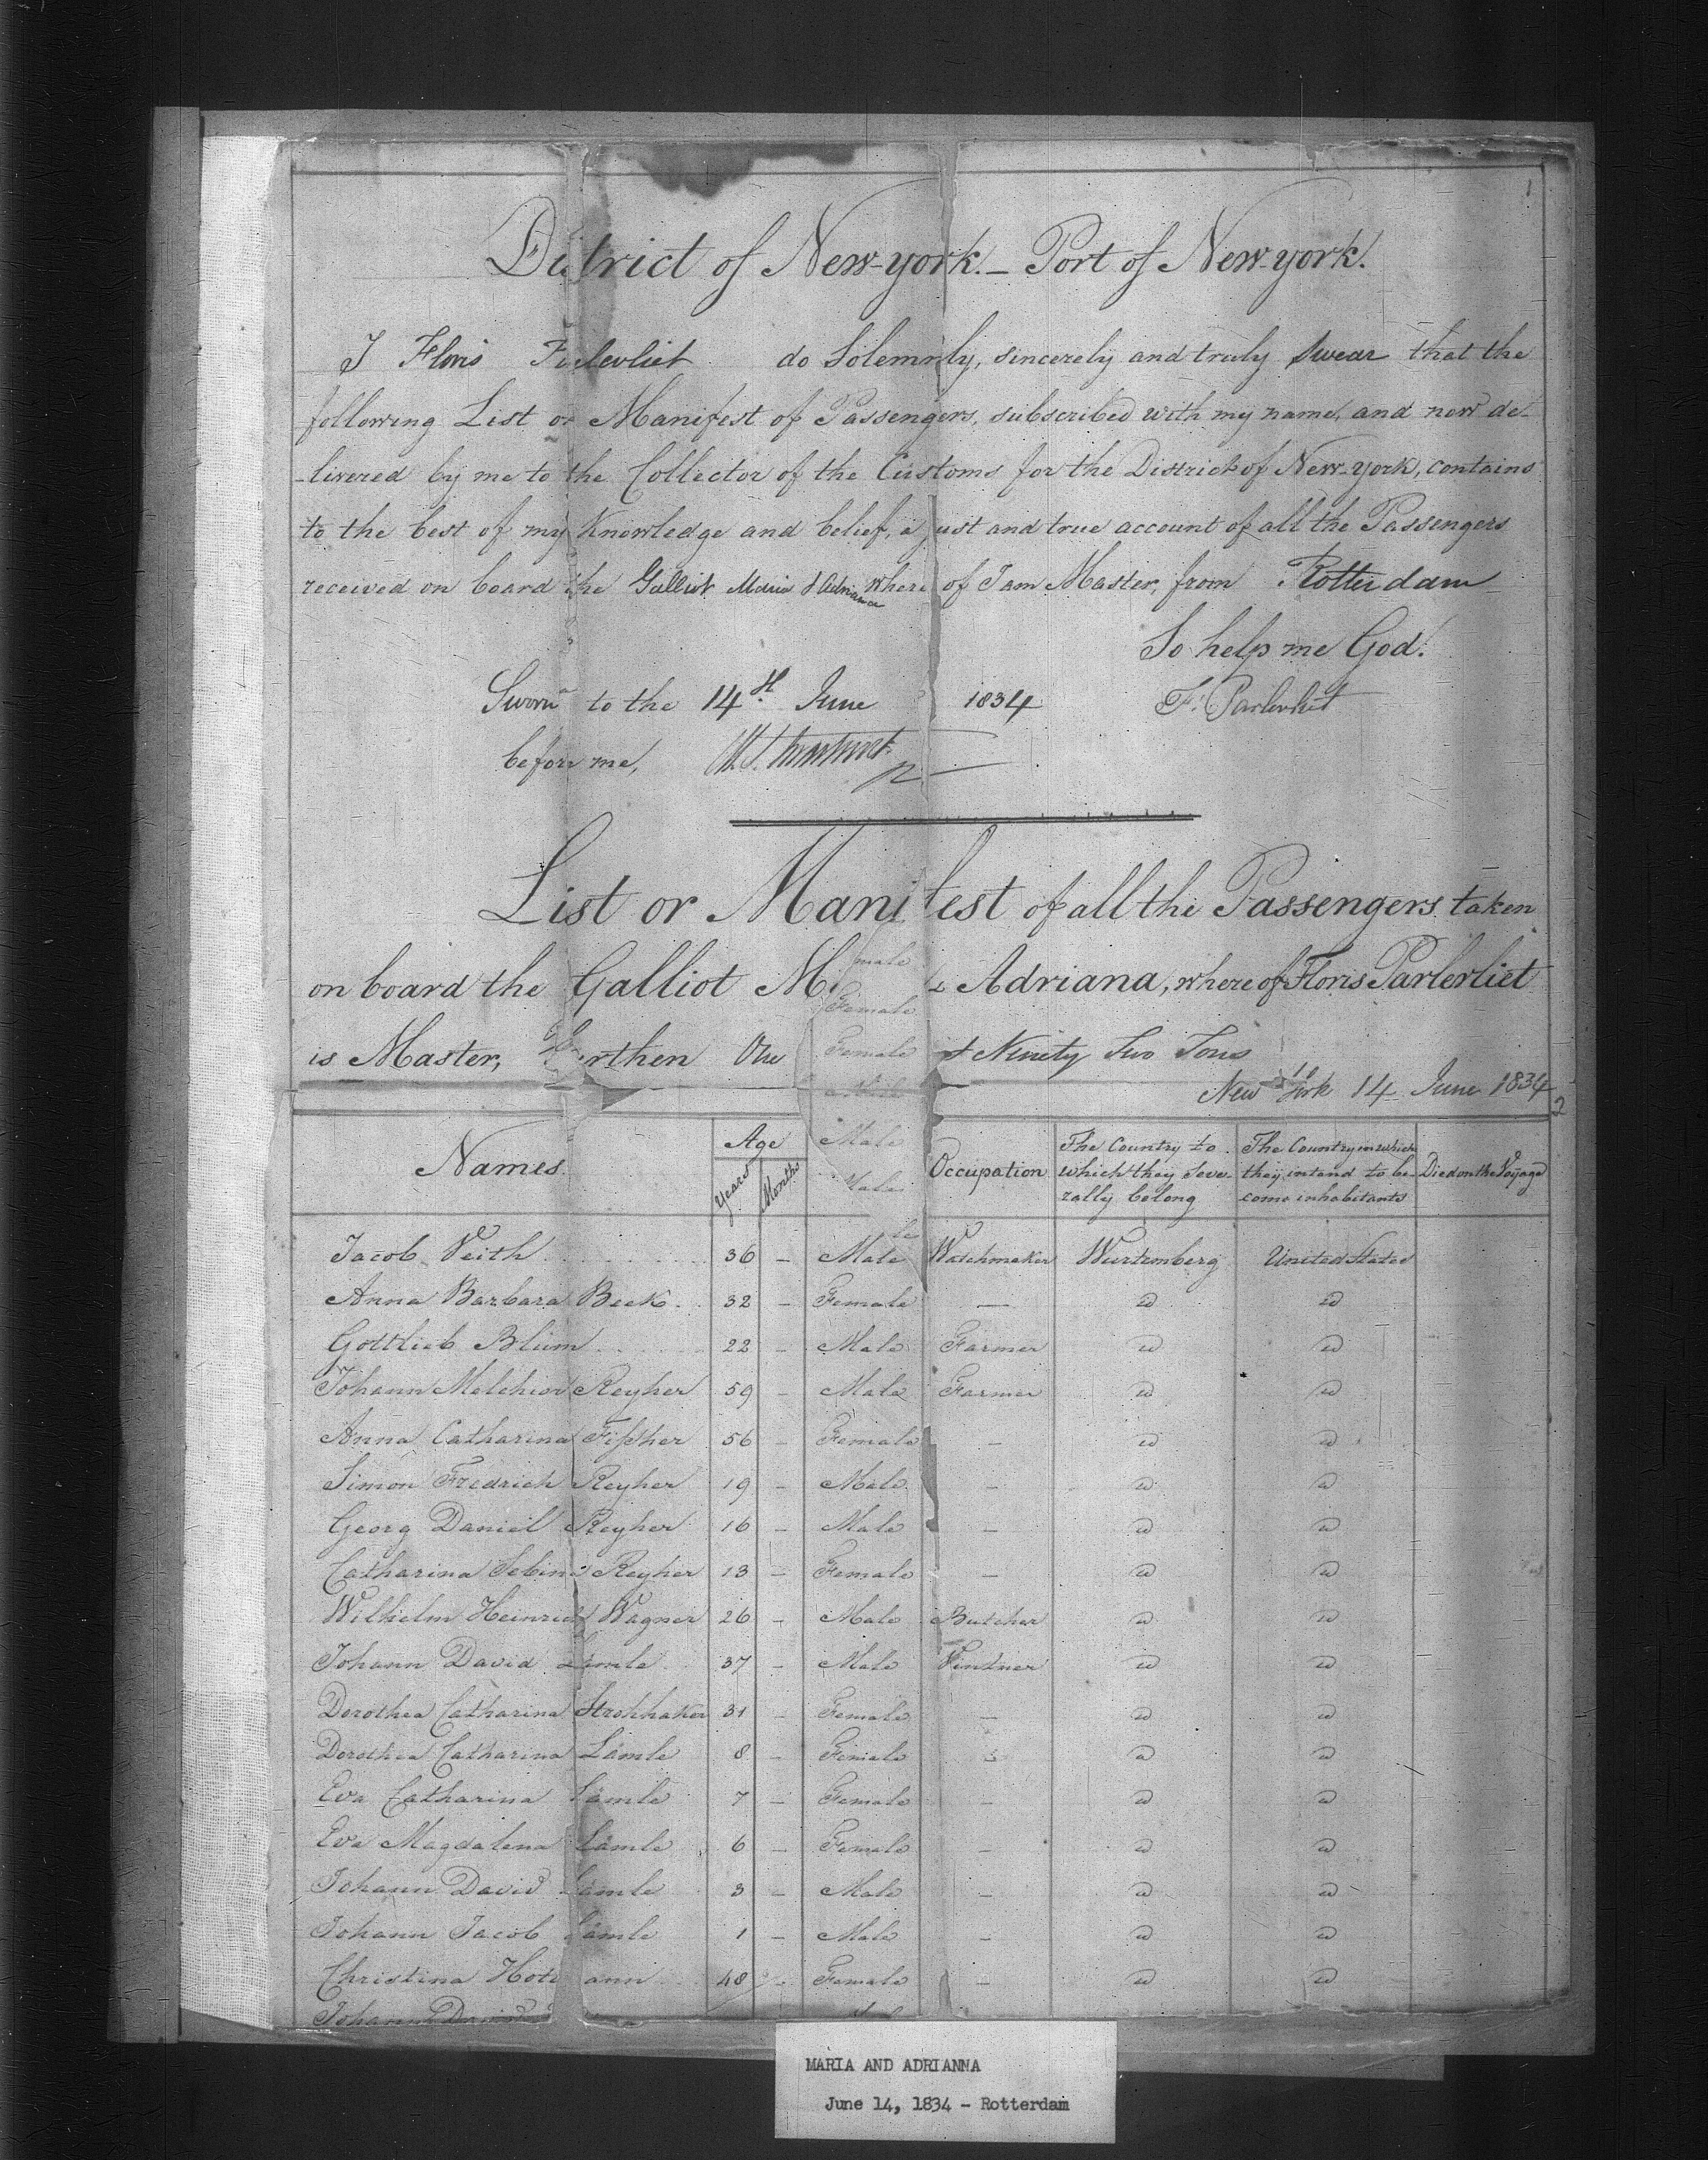 1
District of New-york. _ Port of New-york.
I Floris Parlevliet do Solemnly, sincerely and truly Swear that the
following List or Manifest of Passengers, subscribed with my name, and now de-
-livered by me to the Collector of the Customs for the District of New-york, contains
to the best of my Knowledge and belief, a just and true account of all the Passengers
received on board the Galliot Maria & Adriana where of I am Master, from Rotterdam
So help me God!
Sworn to the 14th June 1834 F. Parlevliet
before me,
List or Manifest of all the Passengers taken
on board the Galliot M & Adriana, where of Floris Parlevliet
is Master, Burthen Ninety Two Tons
New York 14 June 1834
2
male
Female
Female
Male
Male
Names. Age Years Months Occupation The Country to which they seve-rally belong The Country in which they intend to be-come inhabitants Died on the Voyage
Jacob Veith 36 – Male Watchmaker Wurtemberg United States
Anna Barbara Beck 32 – Female — id id
Gottlieb Blum 22 – Male Farmer id id
Johann Melchior Reyher 59 – Male Farmer id id
Anna Catharina Fissher 56 – Female – id id
Simon Fredrich Reyher 19 – Male – id id
Georg Daniel Reyher 16 – Male – id id
Catharina Sebina Reyher 13 – Female – id id
Wilhelm Heinrich Wagner 26 – Male Butcher id id
Johann David Lämle 37 – Male Vintner id id
Dorothea Catharina Strohhaker 31 – Female – id id
Dorothea Catharina Lämle 8 – Female – id id
Eva Catharina Lämle 7 – Female – id id
Eva Magdalena Lämle 6 – Female – id id
Johann David Lämle 3 – Male – id id
Johann Jacob Lämle 1 – Male – id id
Christina Hot ann 48 – Female – id id
Johann David
MARIA AND ADRIANNA
June 14, 1834 – Rotterdam